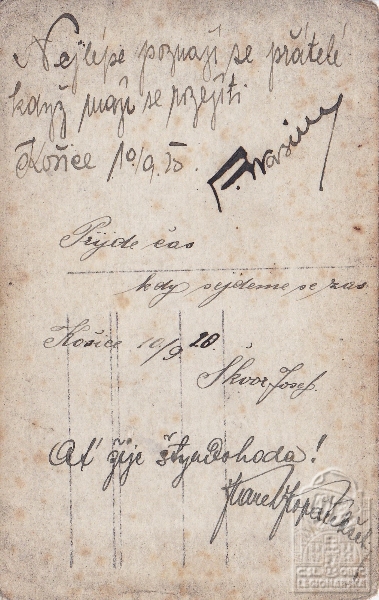 Nejlépe poznají se přátelé
když mají se rozejíti
Košice 10/9.20.
Přijde čas
kdy sejdeme se zas
Košice 10/9 20.
Škvor Josef.
Ať žije štyrdohoda!
Karel
ČSL. OBEC
LEGIONÁŘSKÁ